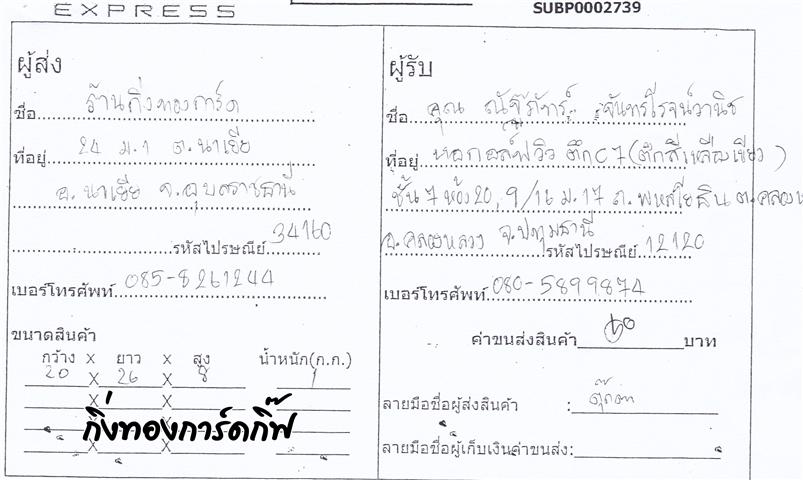 EXPRESS
SUBP0002739
ผู้ส่ง
ชื่อ ร้านกิ่งทองการ์ด
ที่อยู่ 24 ม.1 ต.นาเยีย
อ.นาเยีย จ.อุบลราชธานี
รหัสไปรษณีย์ 34160
เบอร์โทรศัพท์ 085-8261244
ขนาดสินค้า
กว้าง x ยาว x สูง น้ำหนัก(ก.ก.)
20 x 26 x 8 1
x x
x x
x x
กิ่งทองการ์ดกิ๊ฟ
ผู้รับ
ชื่อ คุณ ณัฐภัทร์ จันทร์โรจน์วานิช
ที่อยู่ หอกอล์ฟวิว ตึกC7(ตึกสีเหลืองเขียว)
ชั้น 7 ห้อง20, 9/16 ม.17 ถ.พหลโยธิน ต.คลองห
อ.คลองหลวง จ.ปทุมธานี รหัสไปรษณีย์ 12120
เบอร์โทรศัพท์ 080-5899874
ค่าขนส่งสินค้า 60 บาท
ลายมือชื่อผู้ส่งสินค้า : ตุ๊กตา
ลายมือชื่อผู้เก็บเงินค่าขนส่ง: